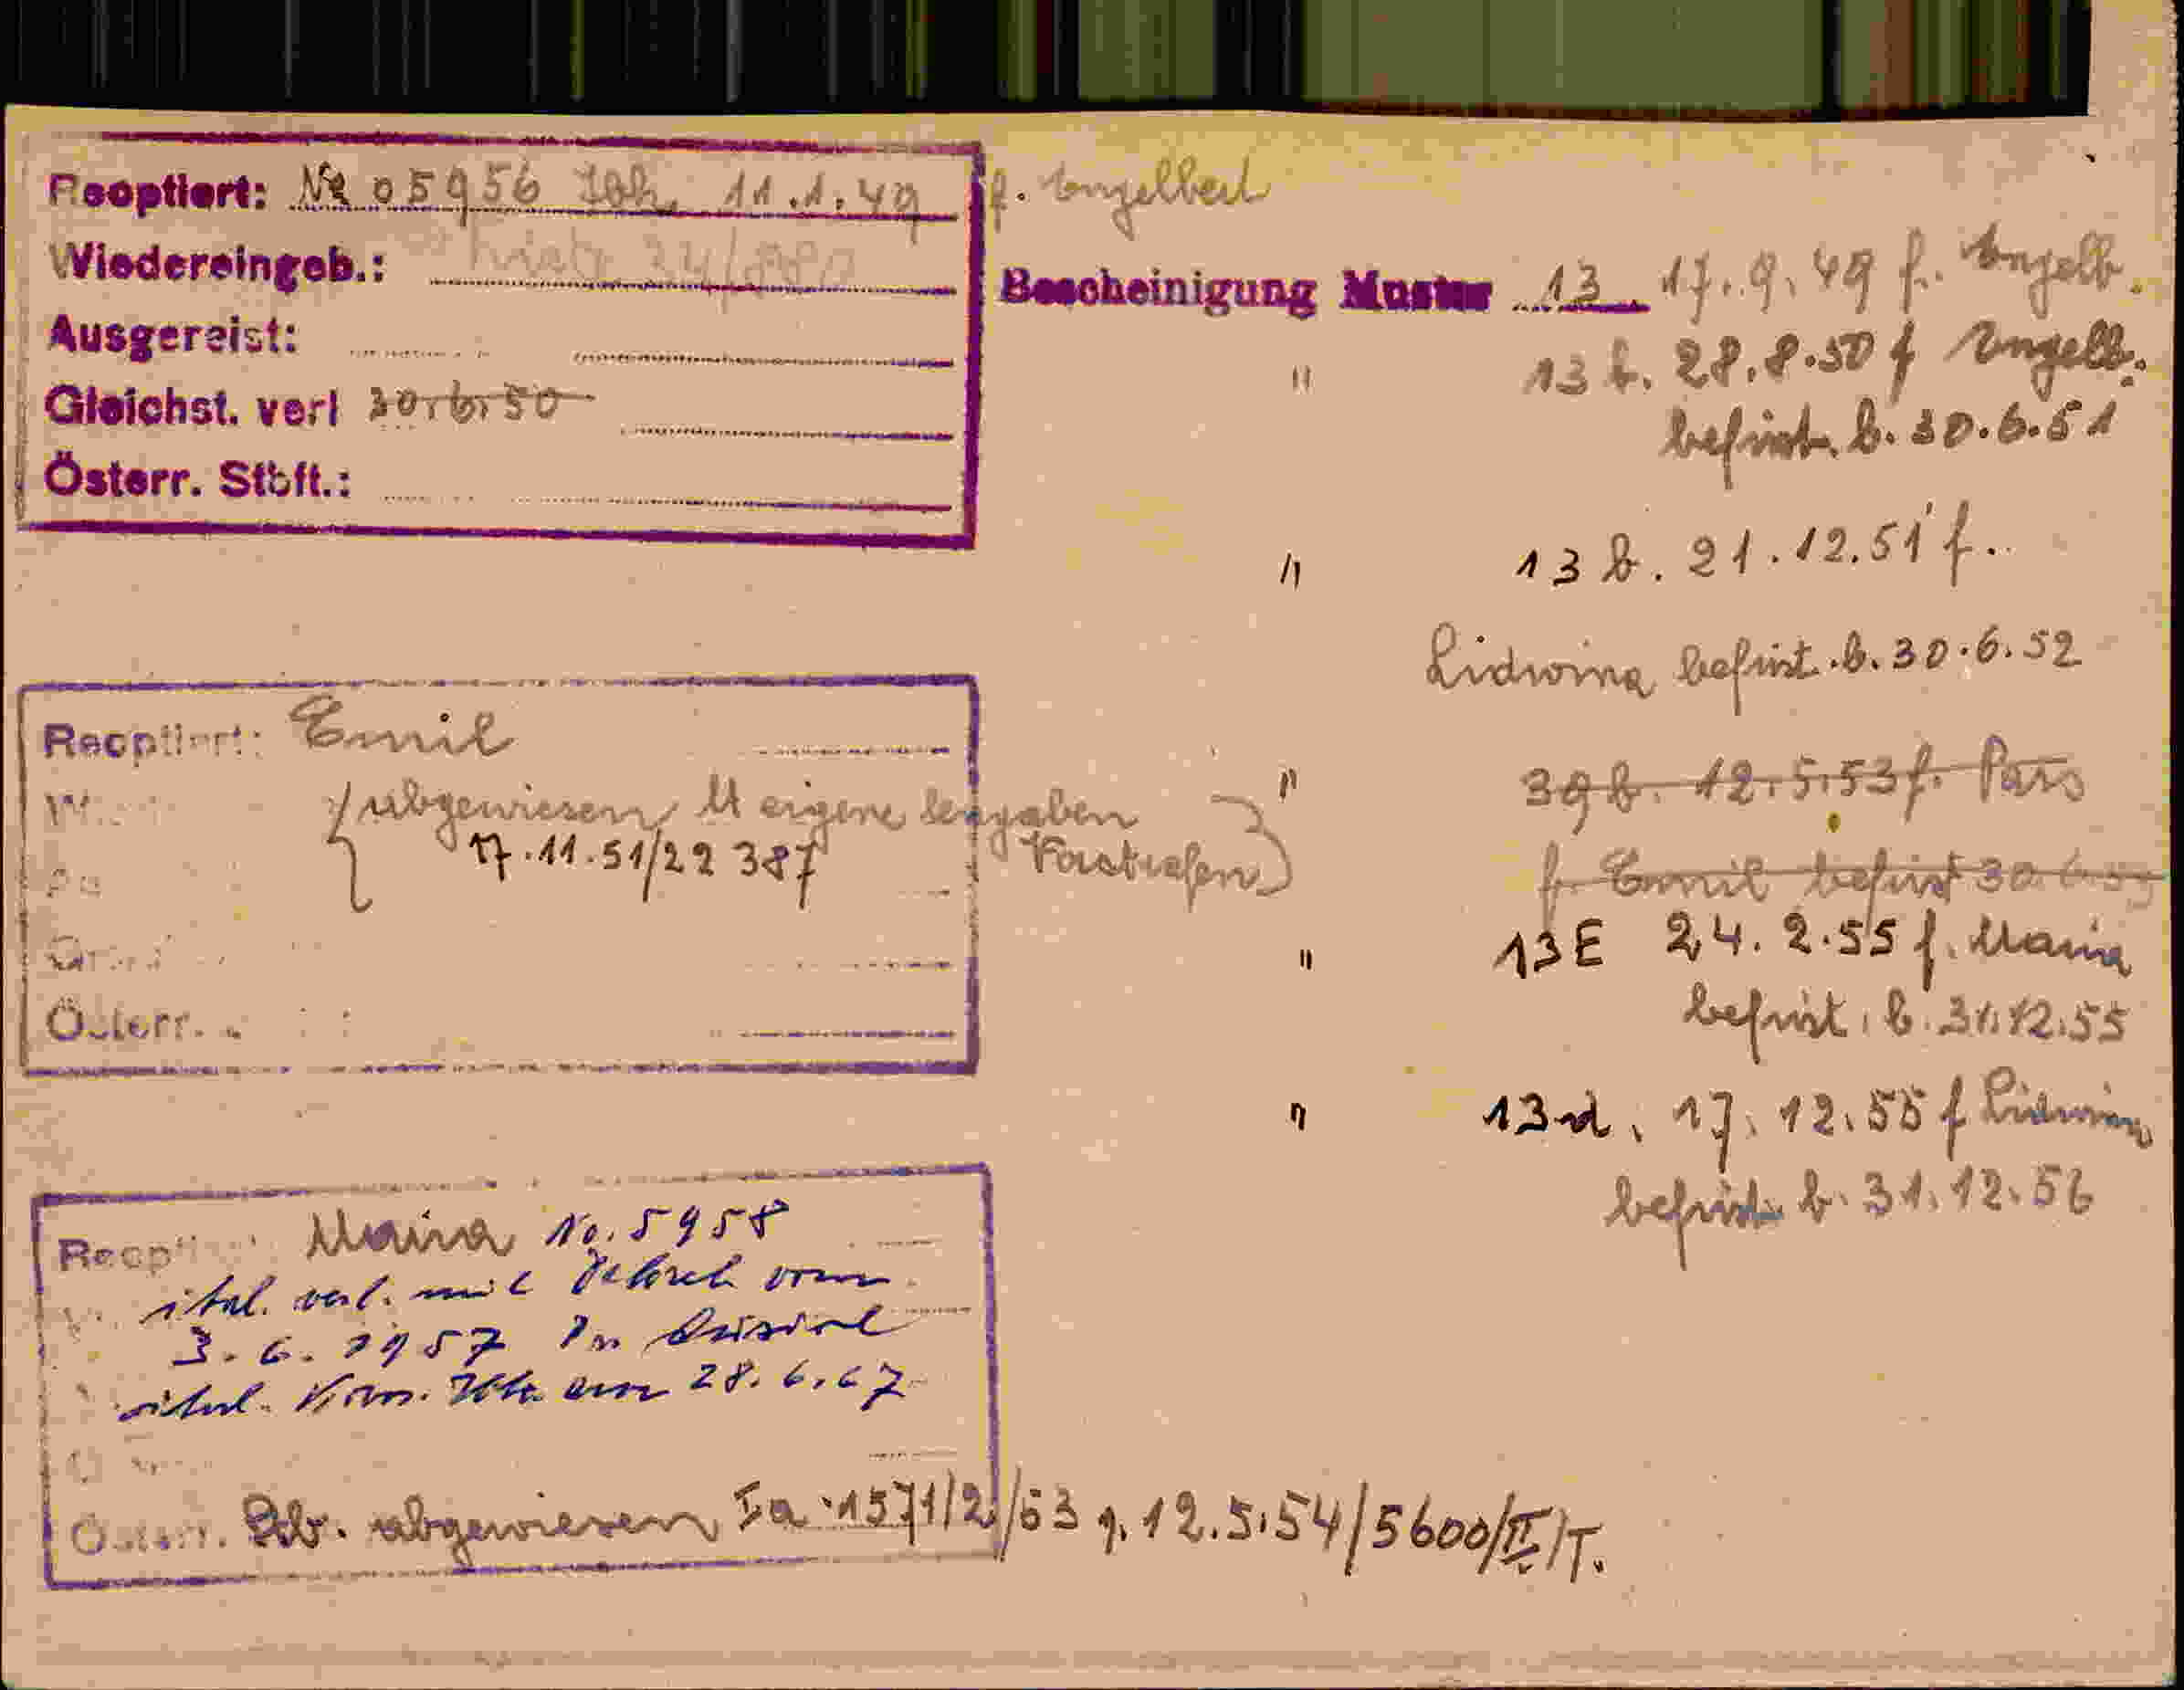 Reoptiert: No 05956 Ibk. 11.1.49 f. Engelbert
Wiedereingeb.:
Ausgereist:
Gleichst. verl 30.6.50
Österr. Stbft.:
Bescheinigung Muster 13 17.9.49 f. Engelb.
" 13 b. 28.8.50 f Engelb.
befrist. b. 30.6.51
" 13 b. 21.12.51 f.
Lidwina befrist. b. 30.6.52
" 39 b. 12.5.53 f. Pass
f. Emil befrist 30.6.
" 13E 24.2.55 f. Maria
befrist. b. 31.12.55
" 13d. 17.12.55 f Lidwina
befrist. b. 31.12.56
Reoptiert: Emil
abgewiesen eigene
17.11.51/22 387
Österr.
Reoptiert Maria No. 5958
ital. verl. mit Dekret vom
3.6.1957
ital. am 28.6.67
Österr. abgewiesen Ia 1571/2/53 v. 12.5.54/5600/II/T.